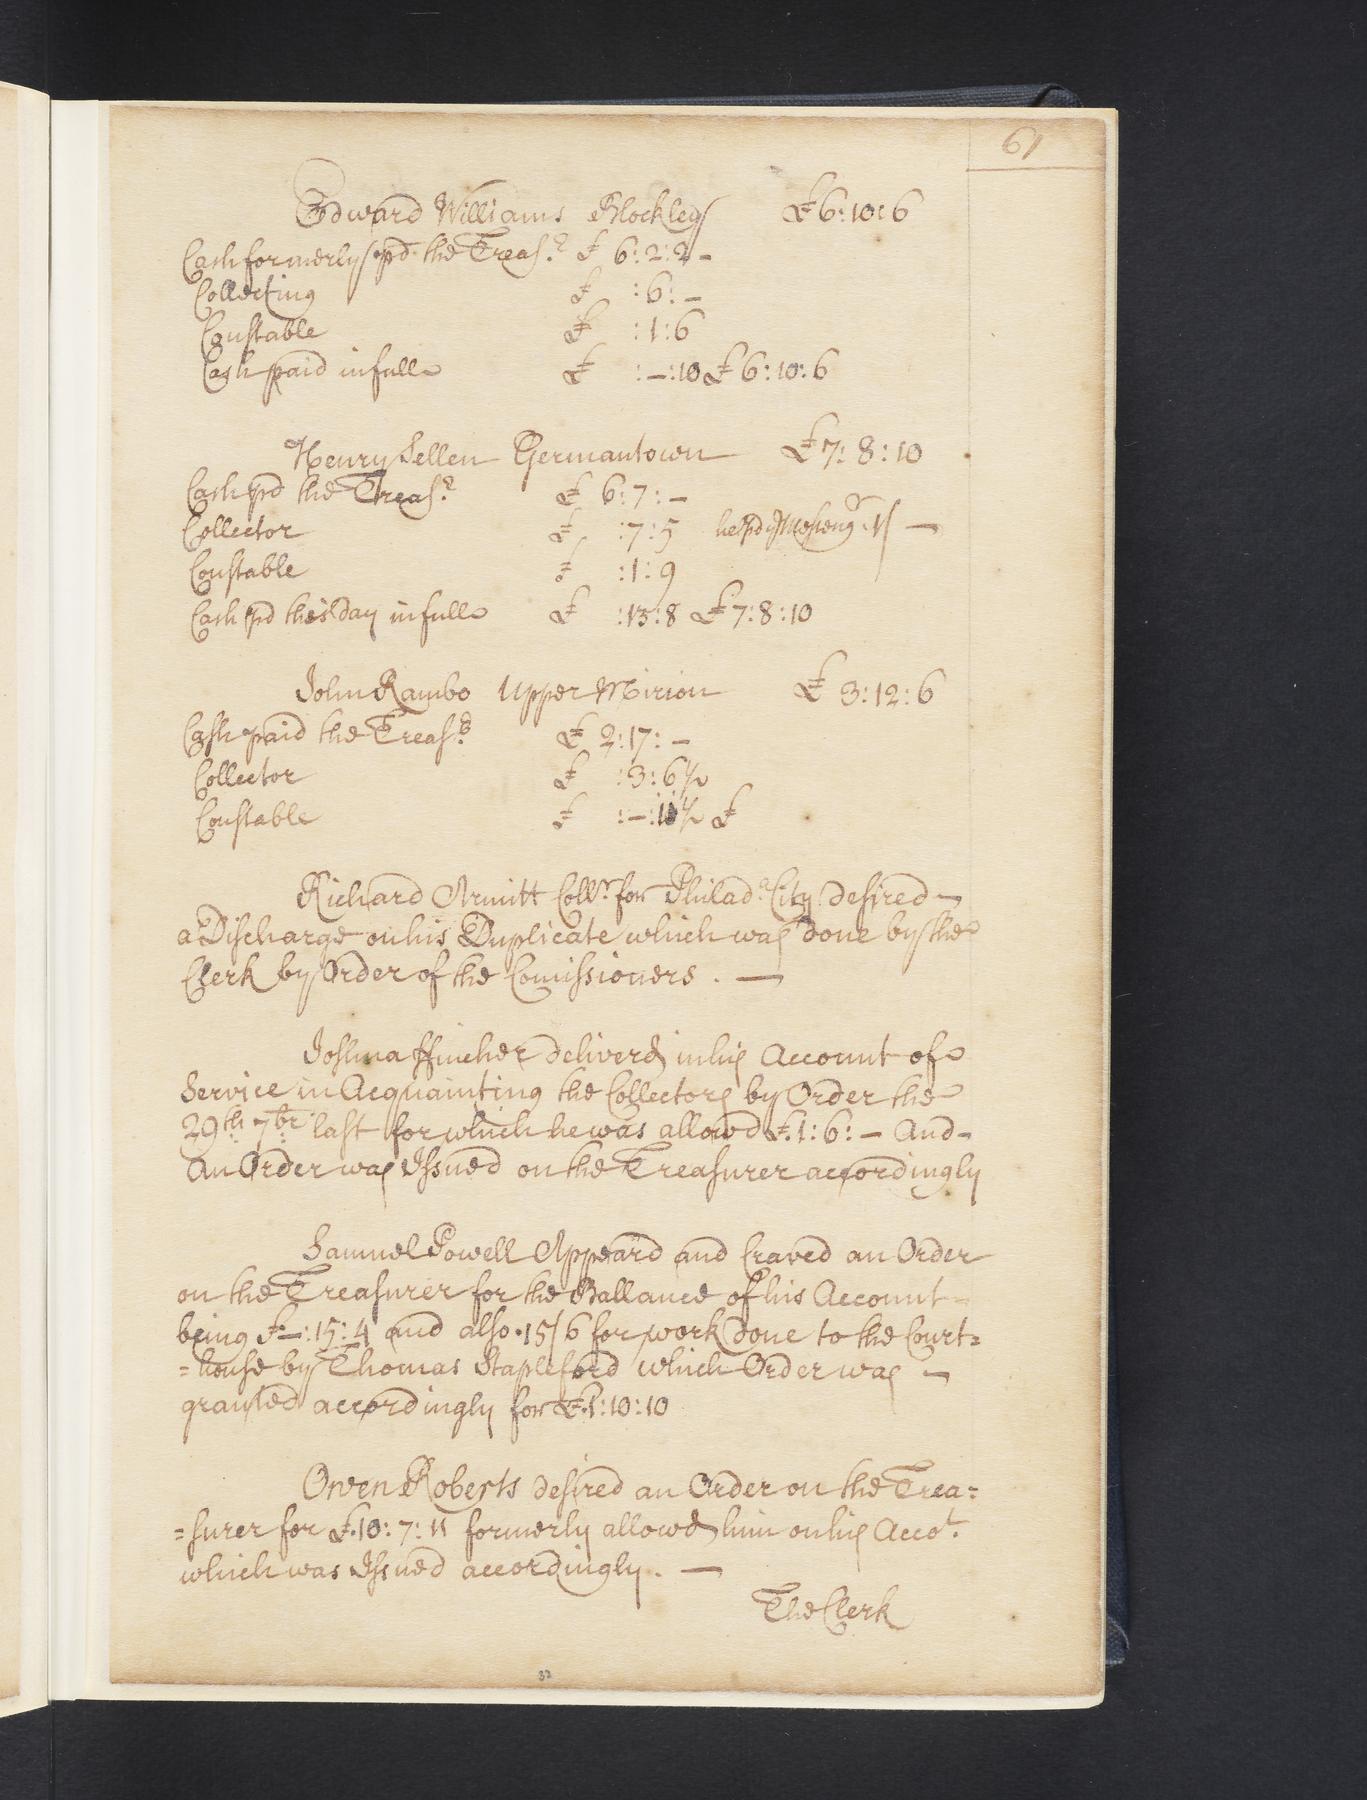 61
Edward Williams Blockley £6:10:6
Cash formerly pd the Treasr £ 6:2:2 -
Collecting £ :6:-
Constable £ :1:6
Cash paid in full £ :-:10 £6:10:6
Henry Sellen Germantown £7:8:10
Cash pd the Treasr £ 6:7:-
Collector £ :7:5 he pd 1/ —
Constable £ :1:9
Cash pd this day in full £ :13:8 £7:8:10
John Rambo Upper Mirion £ 3:12:6
Cash paid the Treasr £ 2:17:-
Collector £ :3:6½
Constable £ :-:11½ £
Richard Armitt Collr for Philada City desired -
a Discharge on his Duplicate which was done by the
Clerk by Order of the Comissioners. —
Joshua ffincher deliverd in his Account of
Service in Acquainting the Collectors by Order the
29th 7br last for which he was allowd £.1:6:- And -
An Order was Issued on the Treasurer accordingly
Samuel Powell Appeard and Craved an Order
on the Treasurer for the Ballance of his Account =
being £-:15:4 and also .15/6 for work done to the Court=
=house by Thomas Stapleford which Order was -
granted accordingly for £.1:10:10
Owen Roberts desired an Order on the Trea=
=surer for £.10:7:11 formerly allowd him on his Accot.
which was Issued accordingly. —
The Clerk
32